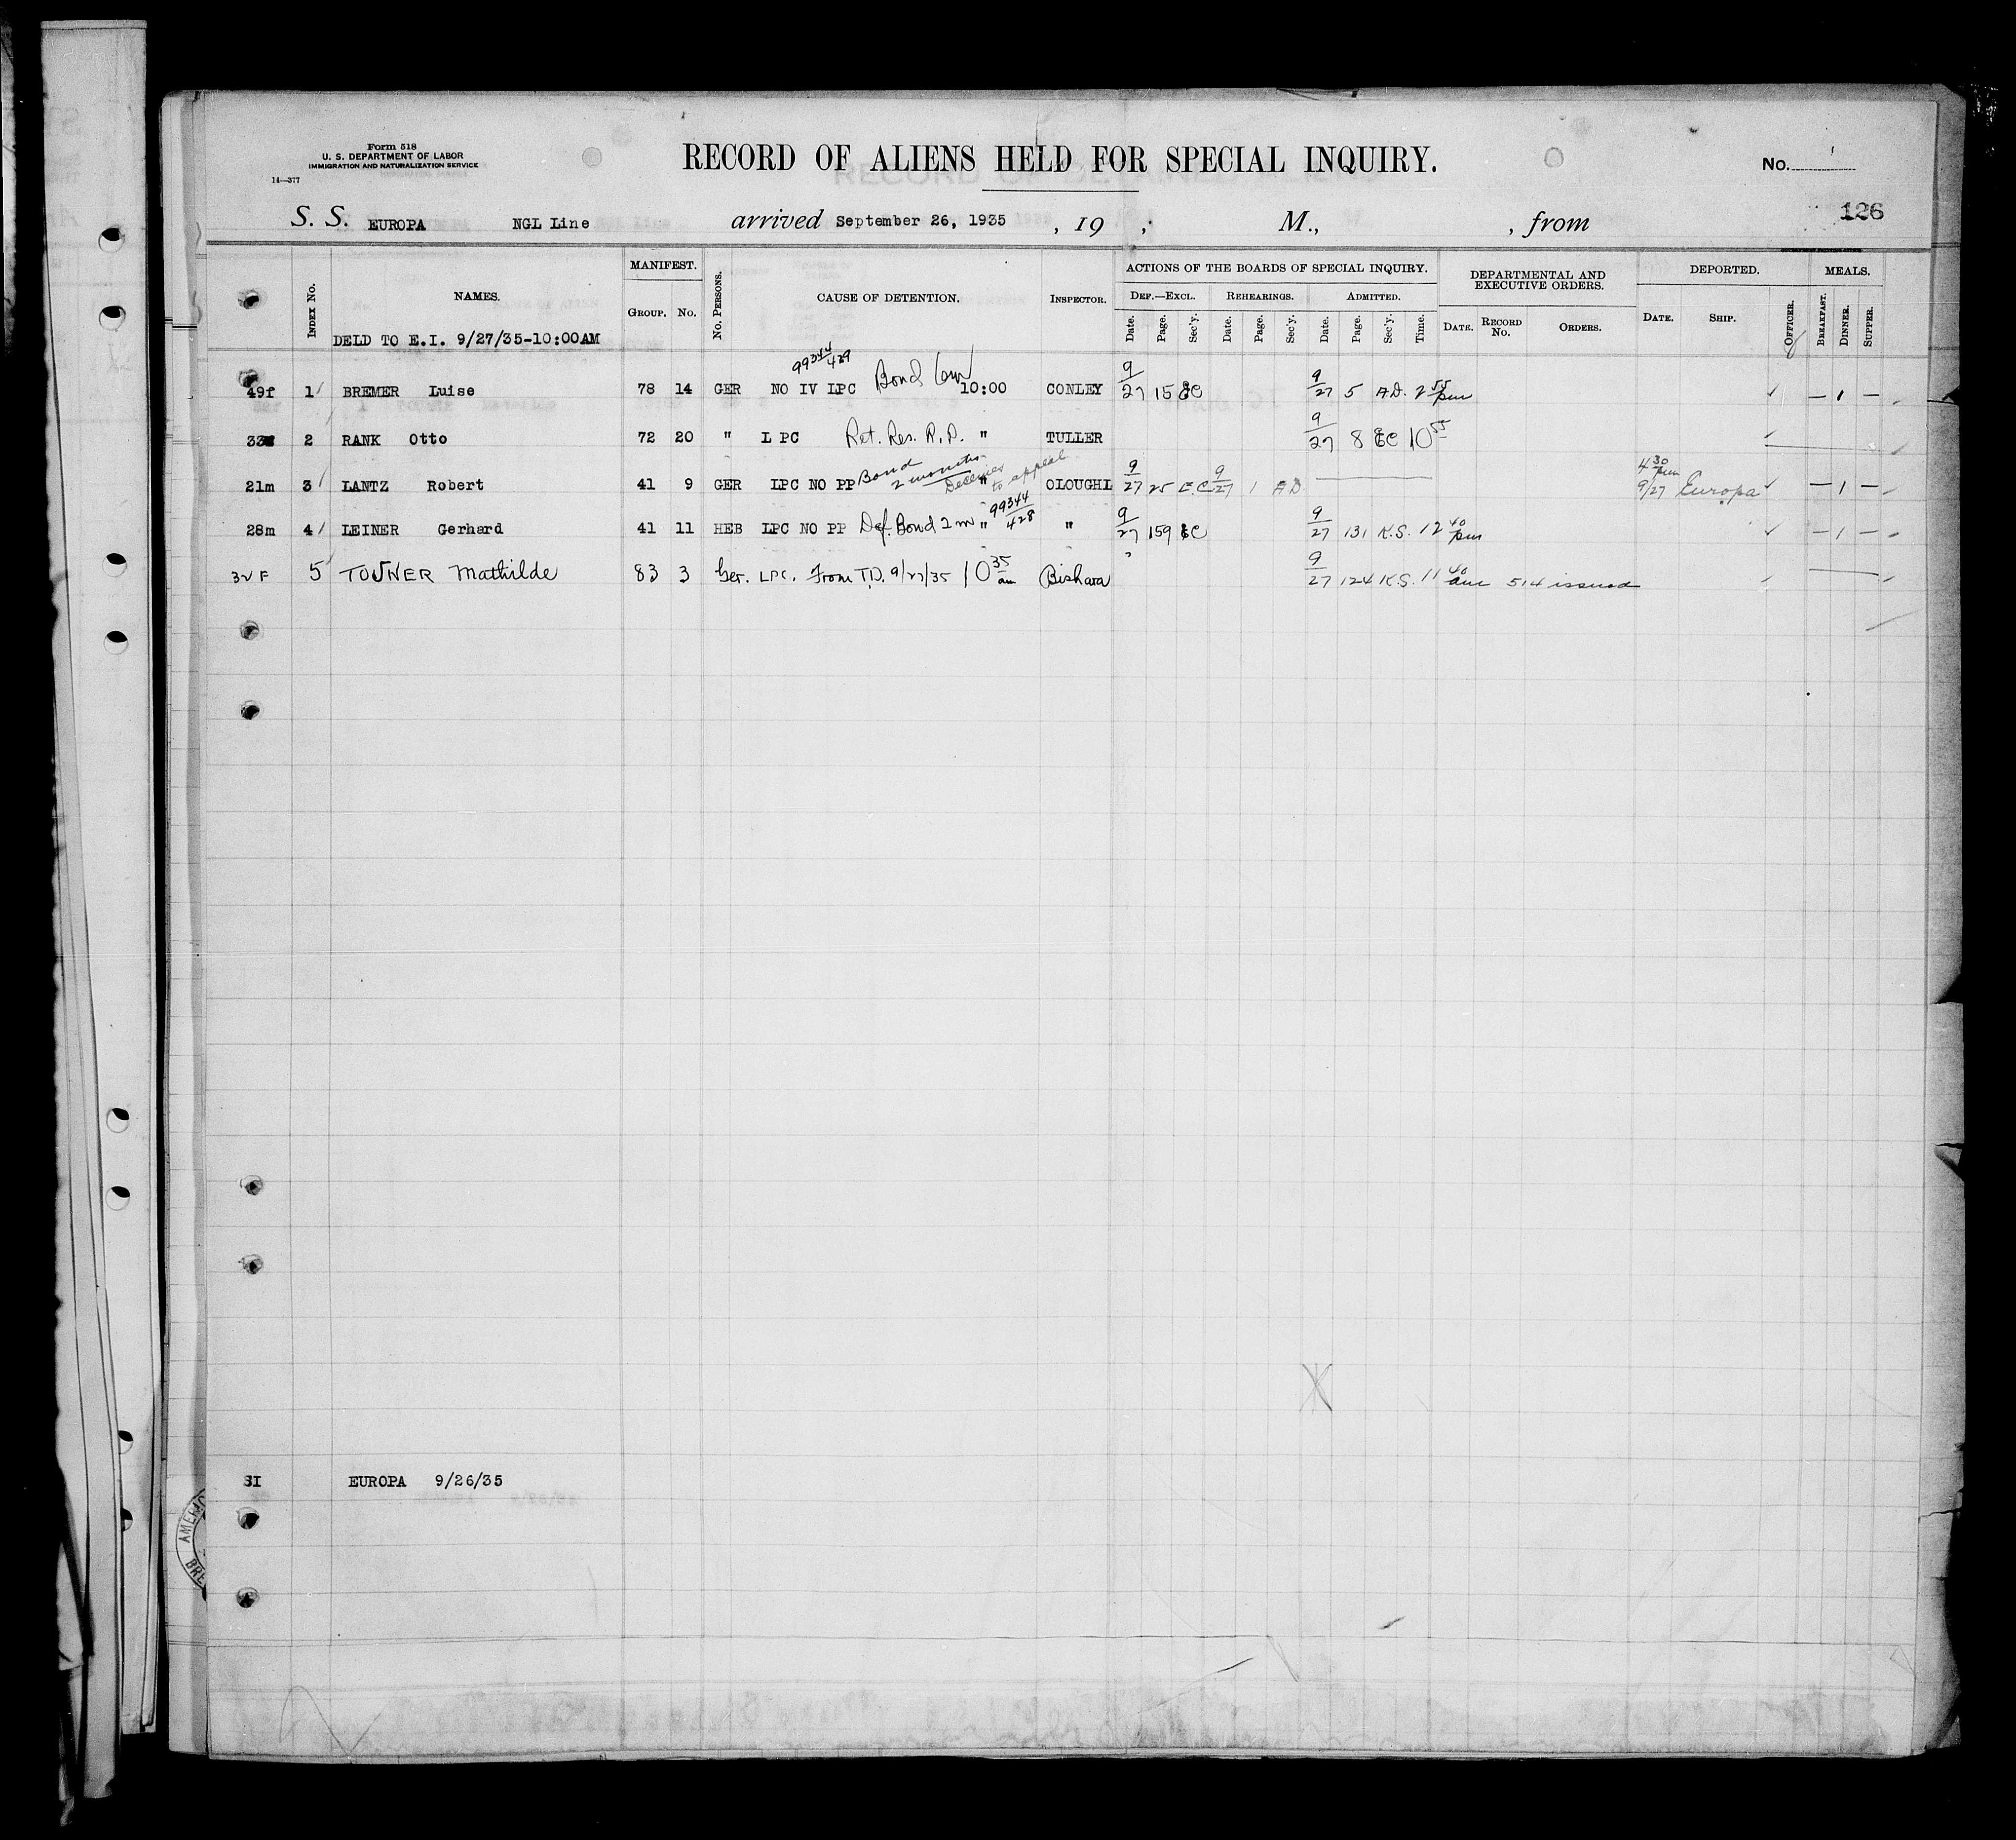 Form 518
U. S. DEPARTMENT OF LABOR
IMMIGRATION AND NATURALIZATION SERVICE
14—377
RECORD OF ALIENS HELD FOR SPECIAL INQUIRY.
No.
126
S. S. EUROPA NGL Line arrived September 26, 1935 , 19 , M., , from
INDEX No. NAMES. MANIFEST. GROUP. No. No. PERSONS. CAUSE OF DETENTION. INSPECTOR. ACTIONS OF THE BOARDS OF SPECIAL INQUIRY. DEF.—EXCL. Date. Page. Sec'y. REHEARINGS. Date. Page. Sec'y. ADMITTED. Date. Page. Sec'y. Time. DEPARTMENTAL AND EXECUTIVE ORDERS. DATE. RECORD No. ORDERS. DEPORTED. DATE. SHIP. OFFICER. MEALS. BREAKFAST. DINNER. SUPPER.
DELD TO E.I. 9/27/35-10:00AM
99344/429
49f 1 BREMER Luise 78 14 GER NO IV LPC Bond 6m 10:00 CONLEY 9/27 15 9/27 5 A.D. 2 55 pm — 1 —
2 RANK Otto 72 20 " L PC Ret. Res. R.P. " TULLER 9/27 8 EC 10 55
21m 3 LANTZ Robert 41 9 GER LPC NO PP Bond 2 months " to appeal OLOUGHL 9/27 25 E.C. 9/27 1 A D 4 30 pm 9/27 Europa — 1 —
28m 4 LEINER Gerhard 41 11 HEB LPC NO PP Def. Bond 2 m " 99344/428 " 9/27 159 EC 9/27 131 K.S. 12 40 pm — 1 —
32 F 5 TOUNER Mathilde 83 3 Ger. LPC. From T.D. 9/27/35 10 35 am Bishara 9/27 124 K.S. 11 40 am 514 issued
SI EUROPA 9/26/35